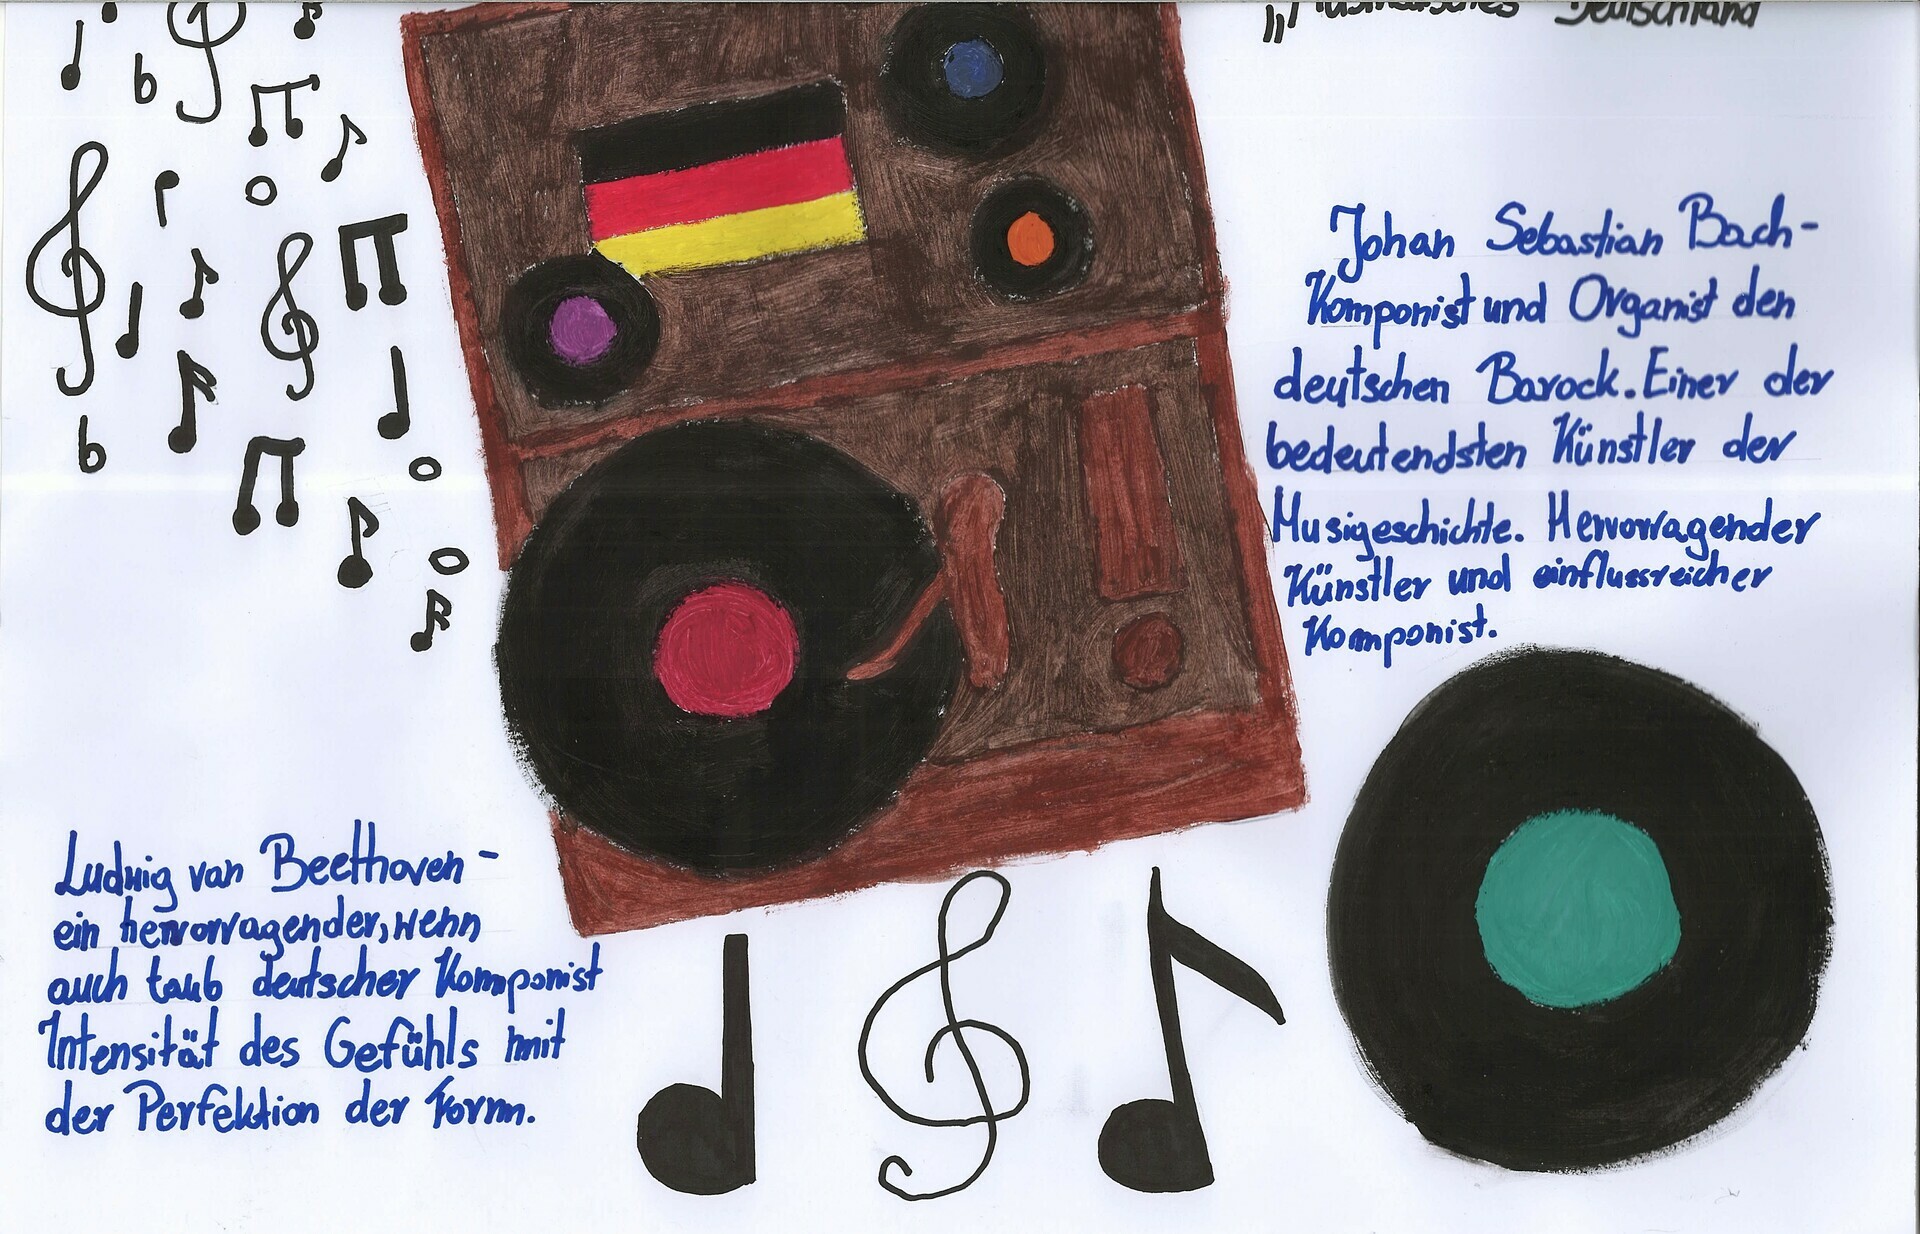 „Musikalisches Deutschland
Johan Sebastian Bach-
Komponist und Organist den
deutschen Barock. Einer der
bedeutendsten Künstler der
Musigeschichte. Hervorragender
Künstler und einflussreicher
Komponist.
Ludwig van Beethoven -
ein hervorragender, wenn
auch taub deutscher Komponist
Intensität des Gefühls mit
der Perfektion der Form.